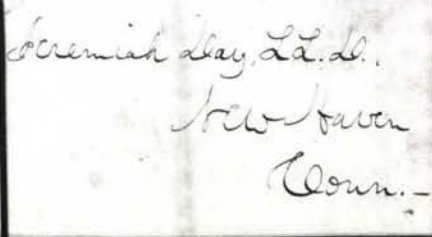 Jeremiah Day, LL.D.,
New Haven
Conn.-